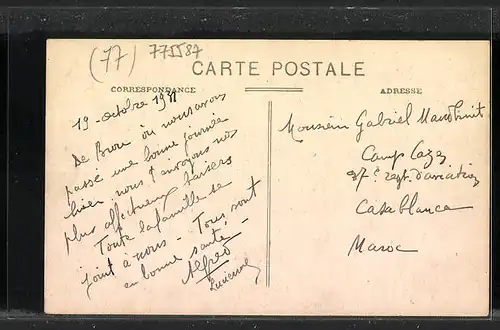 (77) 775587
CARTE POSTALE
CORRESPONDANCE
ADRESSE
19 - octobre 19
De Bron où nous avons
passé une bonne journée
hier nous t'envoyons nos
plus affectueux baisers
Toute la famille se
joint à nous - Tous sont
en bonne santé -
Alfred
Lucienne
Monsieur Gabriel
Camp Cazes
37e regt. d'aviation
Casablanca
Maroc